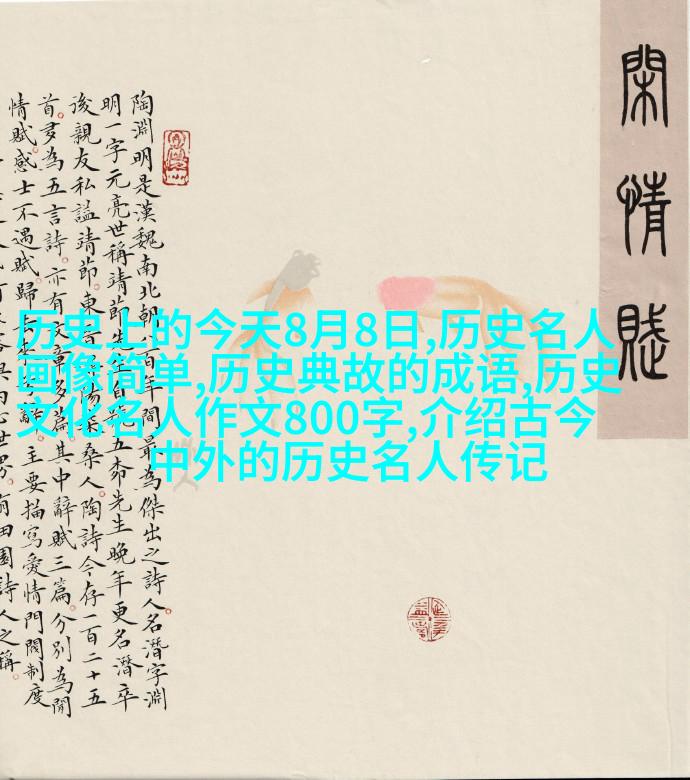 閑情賦
陶淵明是漢魏南北朝八百年間最為傑出之詩人。名潛字淵
明一字元亮世稱靖節先生自號五柳先生晚年更名潛卒
後親友私謚靖節。東晉潯陽柴桑人。陶詩今存一百二十五
首。多為五言詩。亦有文章多篇。其中辭賦三篇。分別為閒
情賦。感士不遇賦。歸去來兮辭。主要描寫愛情門閥制度
田園詩人之稱。
历史上的今天8月8日,历史名人
画像简单,历史典故的成语,历史
文化名人作文800字,介绍古今
中外的历史名人传记